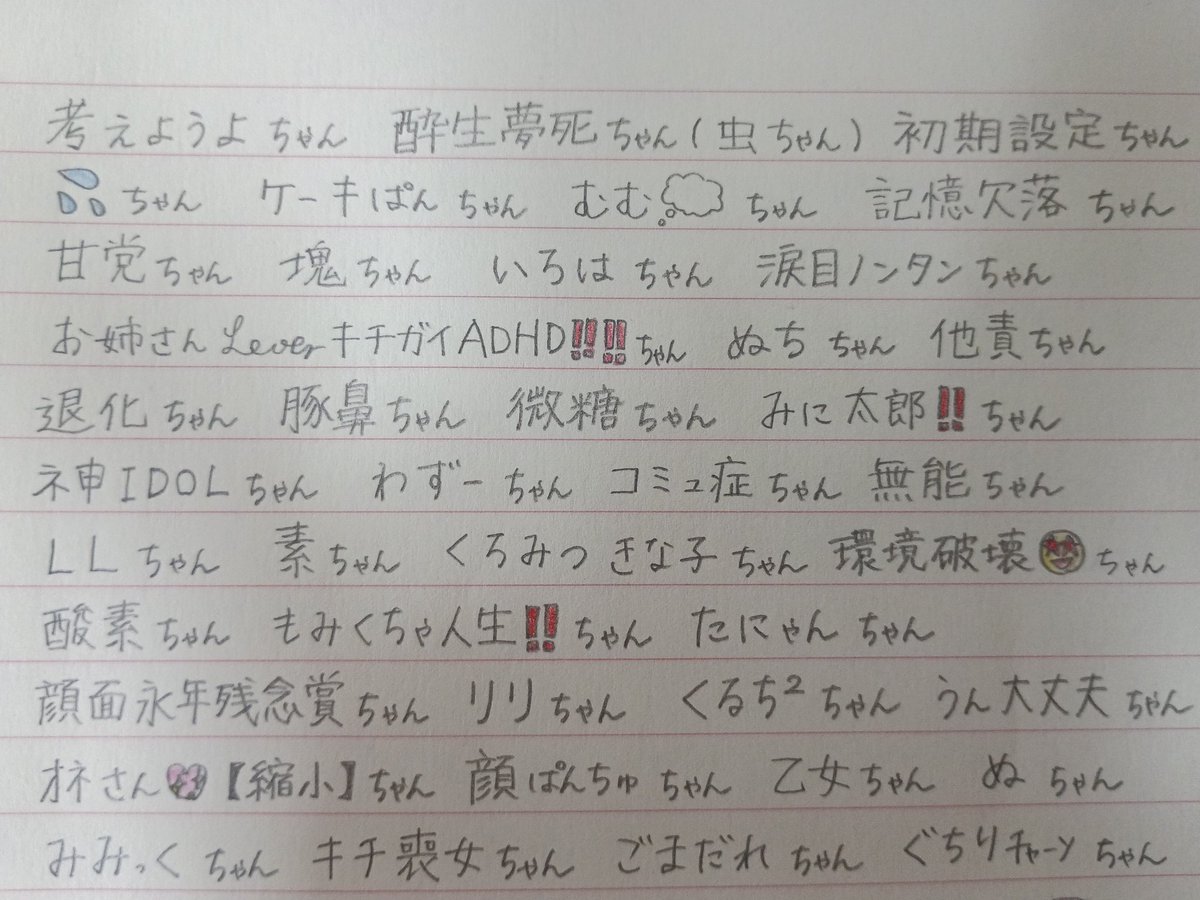 考えようよちゃん 酔生夢死ちゃん(虫ちゃん) 初期設定ちゃん
💦ちゃん ケーキぱんちゃん むむ💭ちゃん 記憶欠落ちゃん
甘党ちゃん 塊ちゃん いろはちゃん 涙目ノンタンちゃん
お姉さんLeverキチガイADHD‼‼ちゃん ぬちちゃん 他責ちゃん
退化ちゃん 豚鼻ちゃん 微糖ちゃん みに太郎‼ちゃん
ネ申IDOLちゃん わずーちゃん コミュ症ちゃん 無能ちゃん
LLちゃん 素ちゃん くろみつきな子ちゃん 環境破壊🤩ちゃん
酸素ちゃん もみくちゃ人生‼ちゃん たにゃんちゃん
顔面永年残念賞ちゃん リリちゃん くるち²ちゃん うん大丈夫ちゃん
オネさん💞【縮小】ちゃん 顔ぱんちゅちゃん 乙女ちゃん ぬちゃん
みみっくちゃん キチ喪女ちゃん ごまだれちゃん ぐちりチャーンちゃん